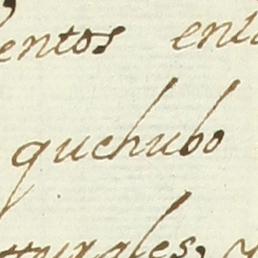 entos en
quehubo
urales, y